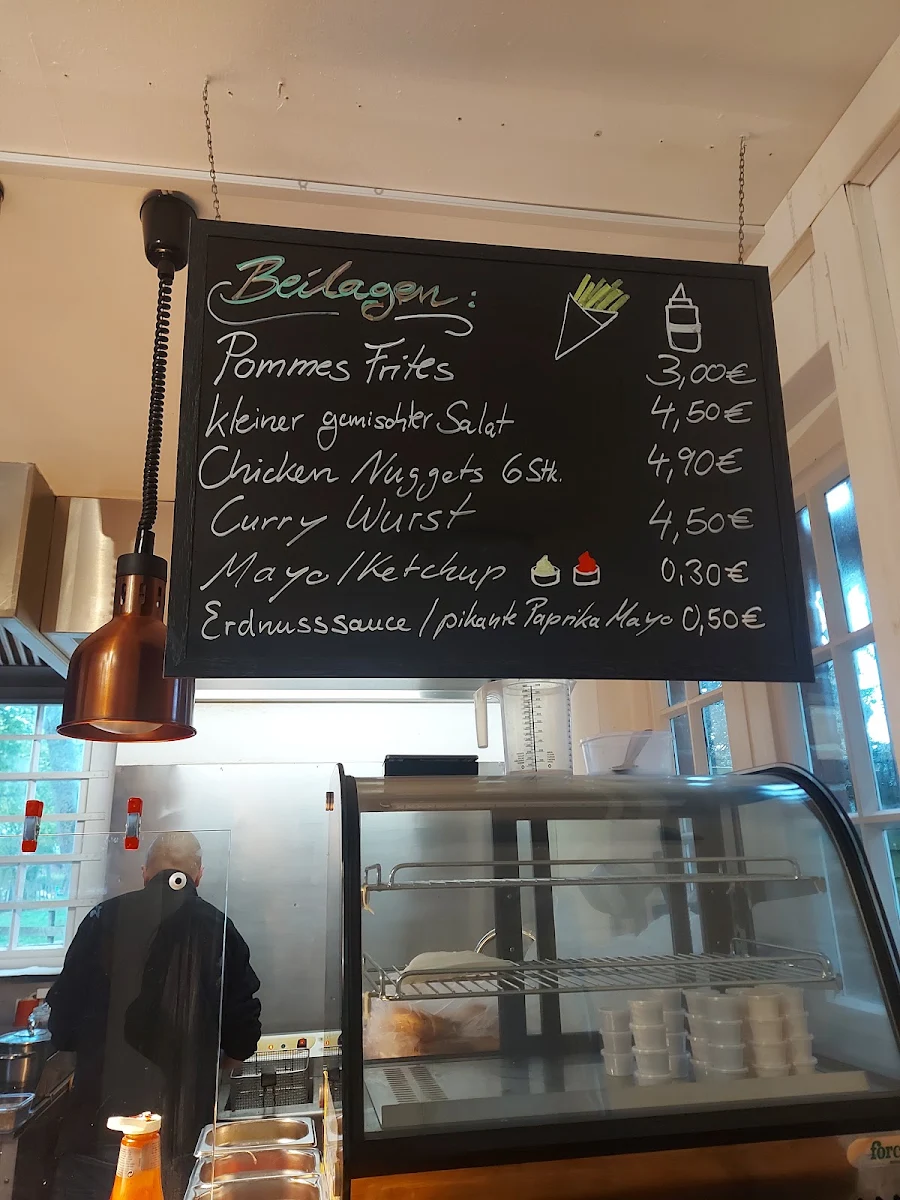 Beilagen:
Pommes Frites 3,00€
kleiner gemischter Salat 4,50€
Chicken Nuggets 6 Stk. 4,90€
Curry Wurst 4,50€
Mayo/Ketchup 0,30€
Erdnusssauce/pikante Paprika Mayo 0,50€